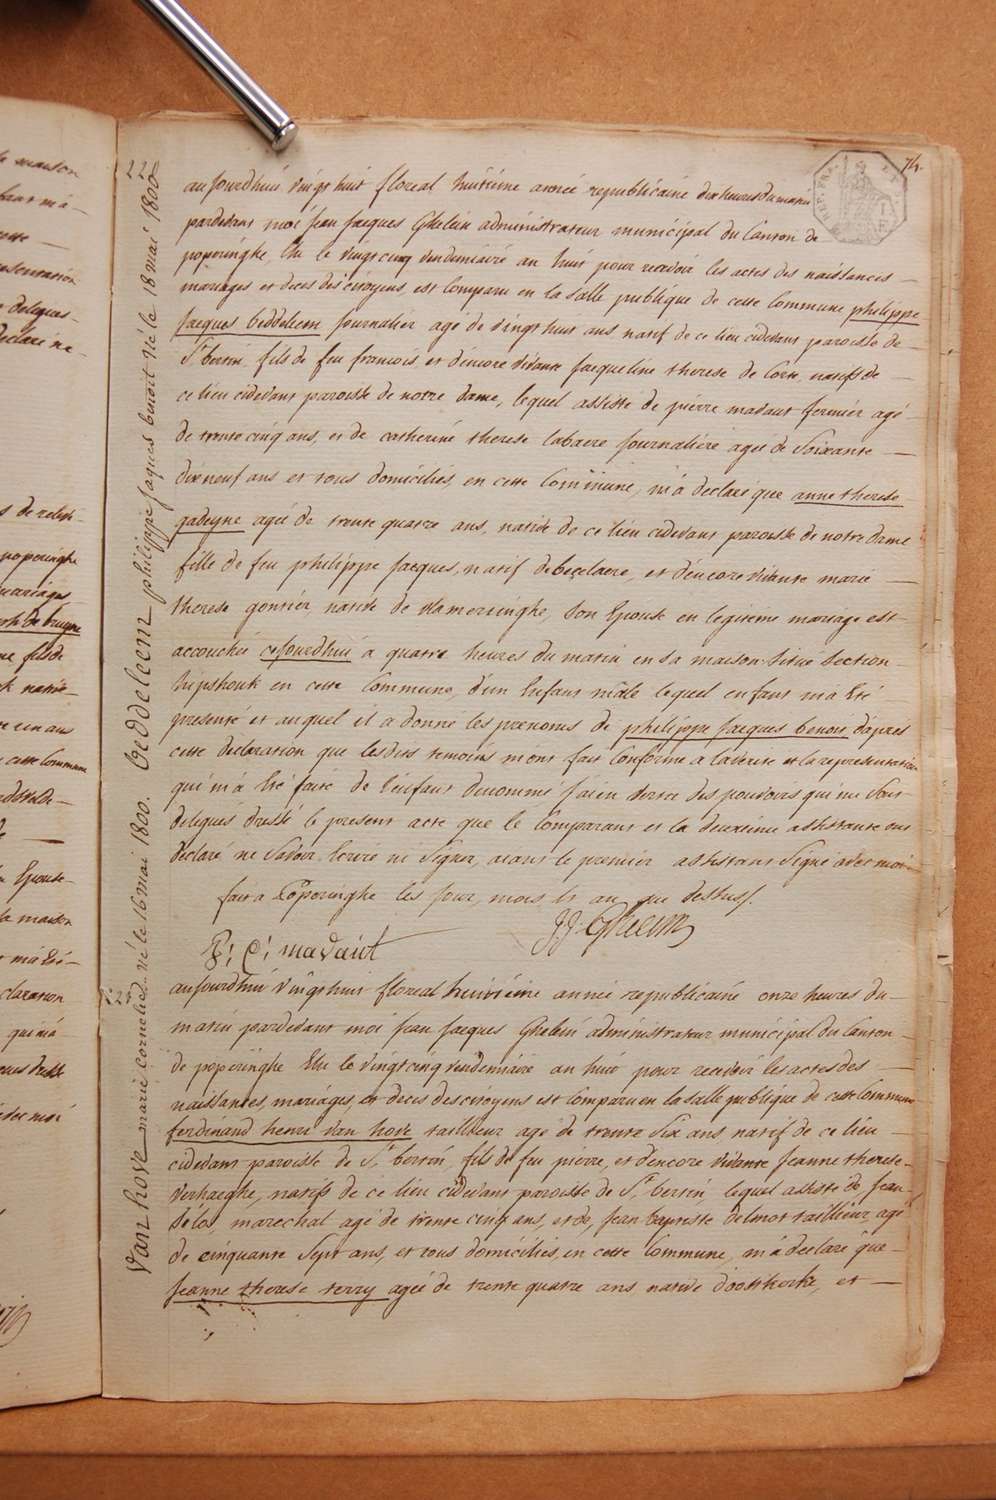 74.
REP. FRA.
228
beddeleem philippe jaques benoit né le 18 mai 1800
aujourdhui vingt huit floreal huitieme année republicaine dix heures du matin
pardevant moi jean jacques Ghelein administrateur municipal du Canton de
poperinghe, Elu le vingt cinq vendemiaire an huit pour recevoir les actes des naissances
mariages et deces des citoyens, est Comparu en la salle publique de cette Commune philippe
jacques beddeleem journalier agé de vingt huit ans natif de ce lieu cidevant paroisse de
St bertin, fils de feu francois et d'encore vivante jacqueline therese de Corte, natifs de
ce lieu cidevant paroisse de notre dame, lequel assisté de pierre madaut fermier agé
de trente cinq ans, et de catherine therese labaere journaliere agée de Soixante
dix neuf ans et tous domiciliés, en cette Commune, m'a declaré que anne therese
gadeyne agée de trente quatre ans, native de ce lieu cidevant paroisse de notre dame
fille de feu philippe jacques, natif de becelaere, et d'encore vivante marie
therese gontier native de vlamertinghe, Son Epouse en legitime mariage est
accouchée cejourdhui a quatre heures du matin en sa maison Située Section
hipshouk en cette Commune, d'un Enfant mâle lequel enfant m'a Eté
presenté et auquel il a donné les prenoms de philippe jacques benoit, d'après
cette declaration que lesdits temoins m'ont fait Conforme a la verité et la representation
qui m'a Eté faite de l'enfant denommé j'ai en vertu des pouvoirs qui me Sont
delegués dressé le present acte que le Comparant et la deuxieme assistante ont
declaré ne Savoir Ecrire ni Signer, aiant le premier assistant Signé avec moi
fait a Poperinghe les jour, mois et an que dessus.
J.J. Ghelein
P: C: madaut
marie cornelie né le 16 mai 1800.
Van hove
aujourdhui vingt huit floreal huitieme année republicaine onze heures du
matin pardevant moi jean jacques Ghelein administrateur municipal du Canton
de poperinghe Elu le vingt cinq vendemiaire an huit pour recevoir les actes des
naissances, mariages, et deces des citoyens est Comparu en la salle publique de cette Commune
ferdinand henri van hove tailleur agé de trente Six ans natif de ce lieu
cidevant paroisse de St bertin, fils de feu pierre, et d'encore vivante jeanne therese
verhaeghe, natifs de ce lieu cidevant paroisse de St bertin, lequel assisté de jean
marechal agé de trente cinq ans, et de, jean baptiste delmot tailleur, agé
de cinquante Sept ans, et tous domiciliés, en cette Commune, m'a declaré que
jeanne therese terry agée de trente quatre ans native d'oostkerke, et